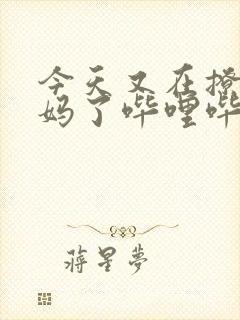 今天又在撩
妈了哔哩哔
蒋星梦